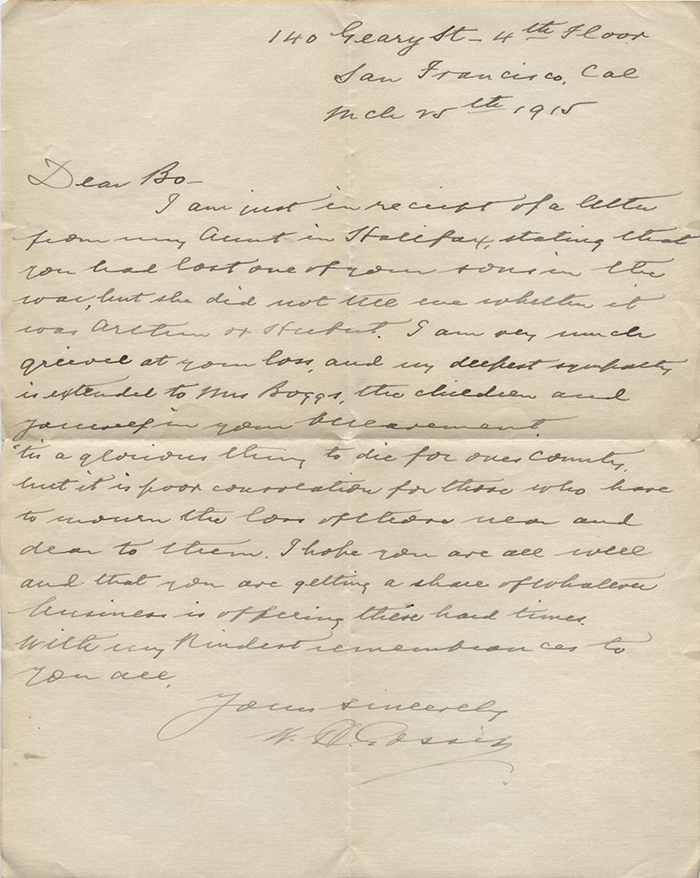 140 Geary St - 4th Floor
San Francisco, Cal
Mch 25th 1915
Dear Bo-
I am just in receipt of a letter
from my Aunt in Halifax, stating that
you had lost one of your sons in the
war, but she did not tell me whether it
was Arthur or Hubert. I am very much
grieved at your loss, and my deepest sympathy
is extended to Mrs Boggs, the children and
yourself in your bereavement.
'tis a glorious thing to die for ones Country,
but it is poor consolation for those who have
to mourn the loss of those near and
dear to them. I hope you are all well
and that you are getting a share of whatever
business is offering these hard times.
With my Kindest remembrances to
you all,
Yours sincerely
W. H.